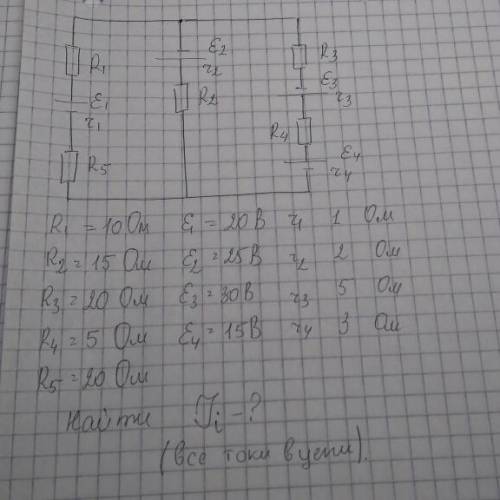 R1
ε1
r1
R5
ε2
r2
R2
R3
ε3
r3
R4
ε4
r4
R1 = 10 Ом ε1 = 20 В r1 1 Ом
R2 = 15 Ом ε2 = 25 В r2 2 Ом
R3 = 20 Ом ε3 = 30 В r3 5 Ом
R4 = 5 Ом ε4 = 15 В r4 3 Ом
R5 = 20 Ом
Найти Ji - ?
(все токи в цепи).